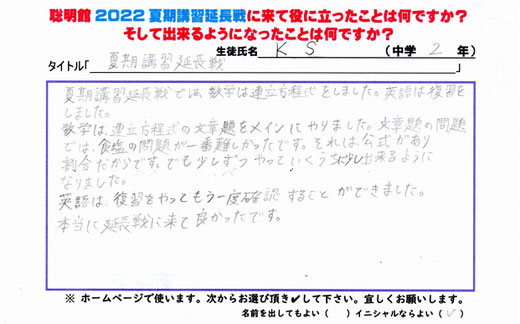 聡明館2022夏期講習延長戦に来て役に立ったことは何ですか?
そして出来るようになったことは何ですか?
生徒氏名 K S (中学 2 年)
タイトル「夏期講習延長戦」
夏期講習延長戦では、数学は連立方程式をしました。英語は復習を
しました。
数学は、連立方程式の文章題をメインにやりました。文章題の問題
では、食塩の問題が一番難しかったです。それは、公式があり
割合だからです。でも少しずつやっていくうちに少し出来るように
なりました。
英語は、復習をやってもう一度確認することができました。
本当に延長戦に来て良かったです。
※ ホームページで使います。次からお選び頂き✓して下さい。宜しくお願いします。
名前を出してもよい( )イニシャルならよい(✓)